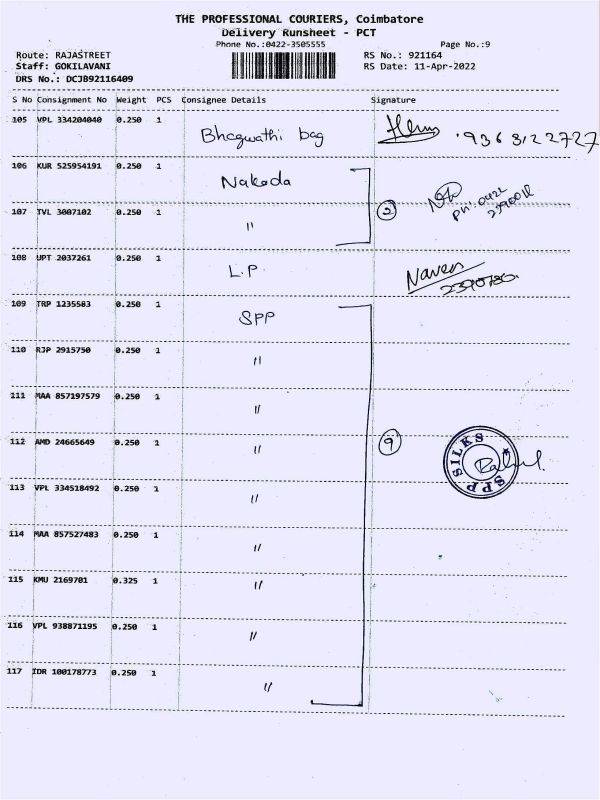 THE PROFESSIONAL COURIERS, Coimbatore
Delivery Runsheet - PCT
Phone No.:0422-3505555 Page No.:9
Route: RAJASTREET RS No.: 921164
Staff: GOKILAVANI RS Date: 11-Apr-2022
DRS No.: DCJB92116409
S No Consignment No Weight PCS Consignee Details Signature
105 VPL 334204040 0.250 1 Bhagwathi bag 9363122727
106 KUR 525954191 0.250 1 Nakoda
Ph: 0422
107 TVL 3007102 0.250 1 " 2
108 UPT 2037261 0.250 1 L.P. Naveen
109 TRP 1235583 0.250 1 SPP
110 RJP 2915750 0.250 1 "
111 MAA 857197579 0.250 1 "
112 AMD 24665649 0.250 1 " 9 SPP SILKS
113 VPL 334518492 0.250 1 "
114 MAA 857527483 0.250 1 "
115 KMU 2169701 0.325 1 "
116 VPL 938871195 0.250 1 "
117 IDR 100178773 0.250 1 "